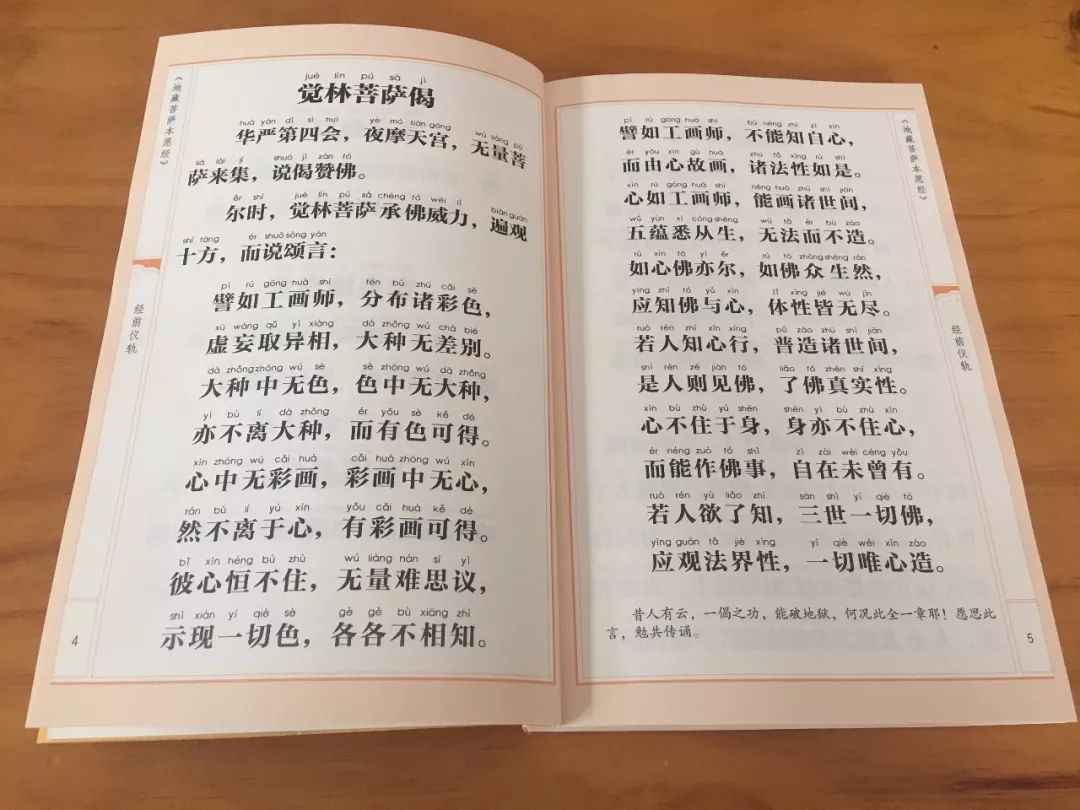 《地藏菩萨本愿经》
经前仪轨
4
jué lín pú sà jì
觉林菩萨偈
huá yán dì sì huì yè mó tiān gōng wú liàng pú
华严第四会，夜摩天宫，无量菩
sà lái jí shuō jì zàn fó
萨来集，说偈赞佛。
ěr shí jué lín pú sà chéng fó wēi lì biàn guān
尔时，觉林菩萨承佛威力，遍观
shí fāng ér shuō sòng yán
十方，而说颂言：
pì rú gōng huà shī fēn bù zhū cǎi sè
譬如工画师，分布诸彩色，
xū wàng qǔ yì xiàng dà zhǒng wú chā bié
虚妄取异相，大种无差别。
dà zhǒng zhōng wú sè sè zhōng wú dà zhǒng
大种中无色，色中无大种，
yì bù lí dà zhǒng ér yǒu sè kě dé
亦不离大种，而有色可得。
xīn zhōng wú cǎi huà cǎi huà zhōng wú xīn
心中无彩画，彩画中无心，
rán bù lí yú xīn yǒu cǎi huà kě dé
然不离于心，有彩画可得。
bǐ xīn héng bù zhù wú liàng nán sī yì
彼心恒不住，无量难思议，
shì xiàn yí qiè sè gè gè bù xiāng zhī
示现一切色，各各不相知。
pì rú gōng huà shī bù néng zhī zì xīn
譬如工画师，不能知自心，
ér yóu xīn gù huà zhū fǎ xìng rú shì
而由心故画，诸法性如是。
xīn rú gōng huà shī néng huà zhū shì jiān
心如工画师，能画诸世间，
wǔ yùn xī cóng shēng wú fǎ ér bù zào
五蕴悉从生，无法而不造。
rú xīn fó yì ěr rú fó zhòng shēng rán
如心佛亦尔，如佛众生然，
yīng zhī fó yǔ xīn tǐ xìng jiē wú jìn
应知佛与心，体性皆无尽。
ruò rén zhī xīn xíng pǔ zào zhū shì jiān
若人知心行，普造诸世间，
shì rén zé jiàn fó liǎo fó zhēn shí xìng
是人则见佛，了佛真实性。
xīn bù zhù yú shēn shēn yì bù zhù xīn
心不住于身，身亦不住心，
ér néng zuò fó shì zì zài wèi céng yǒu
而能作佛事，自在未曾有。
ruò rén yù liǎo zhī sān shì yí qiè fó
若人欲了知，三世一切佛，
yīng guān fǎ jiè xìng yí qiè wéi xīn zào
应观法界性，一切唯心造。
昔人有云，一偈之功，能破地狱，何况此全一章耶！愿思此
言，勉共传诵。
《地藏菩萨本愿经》
经前仪轨
5